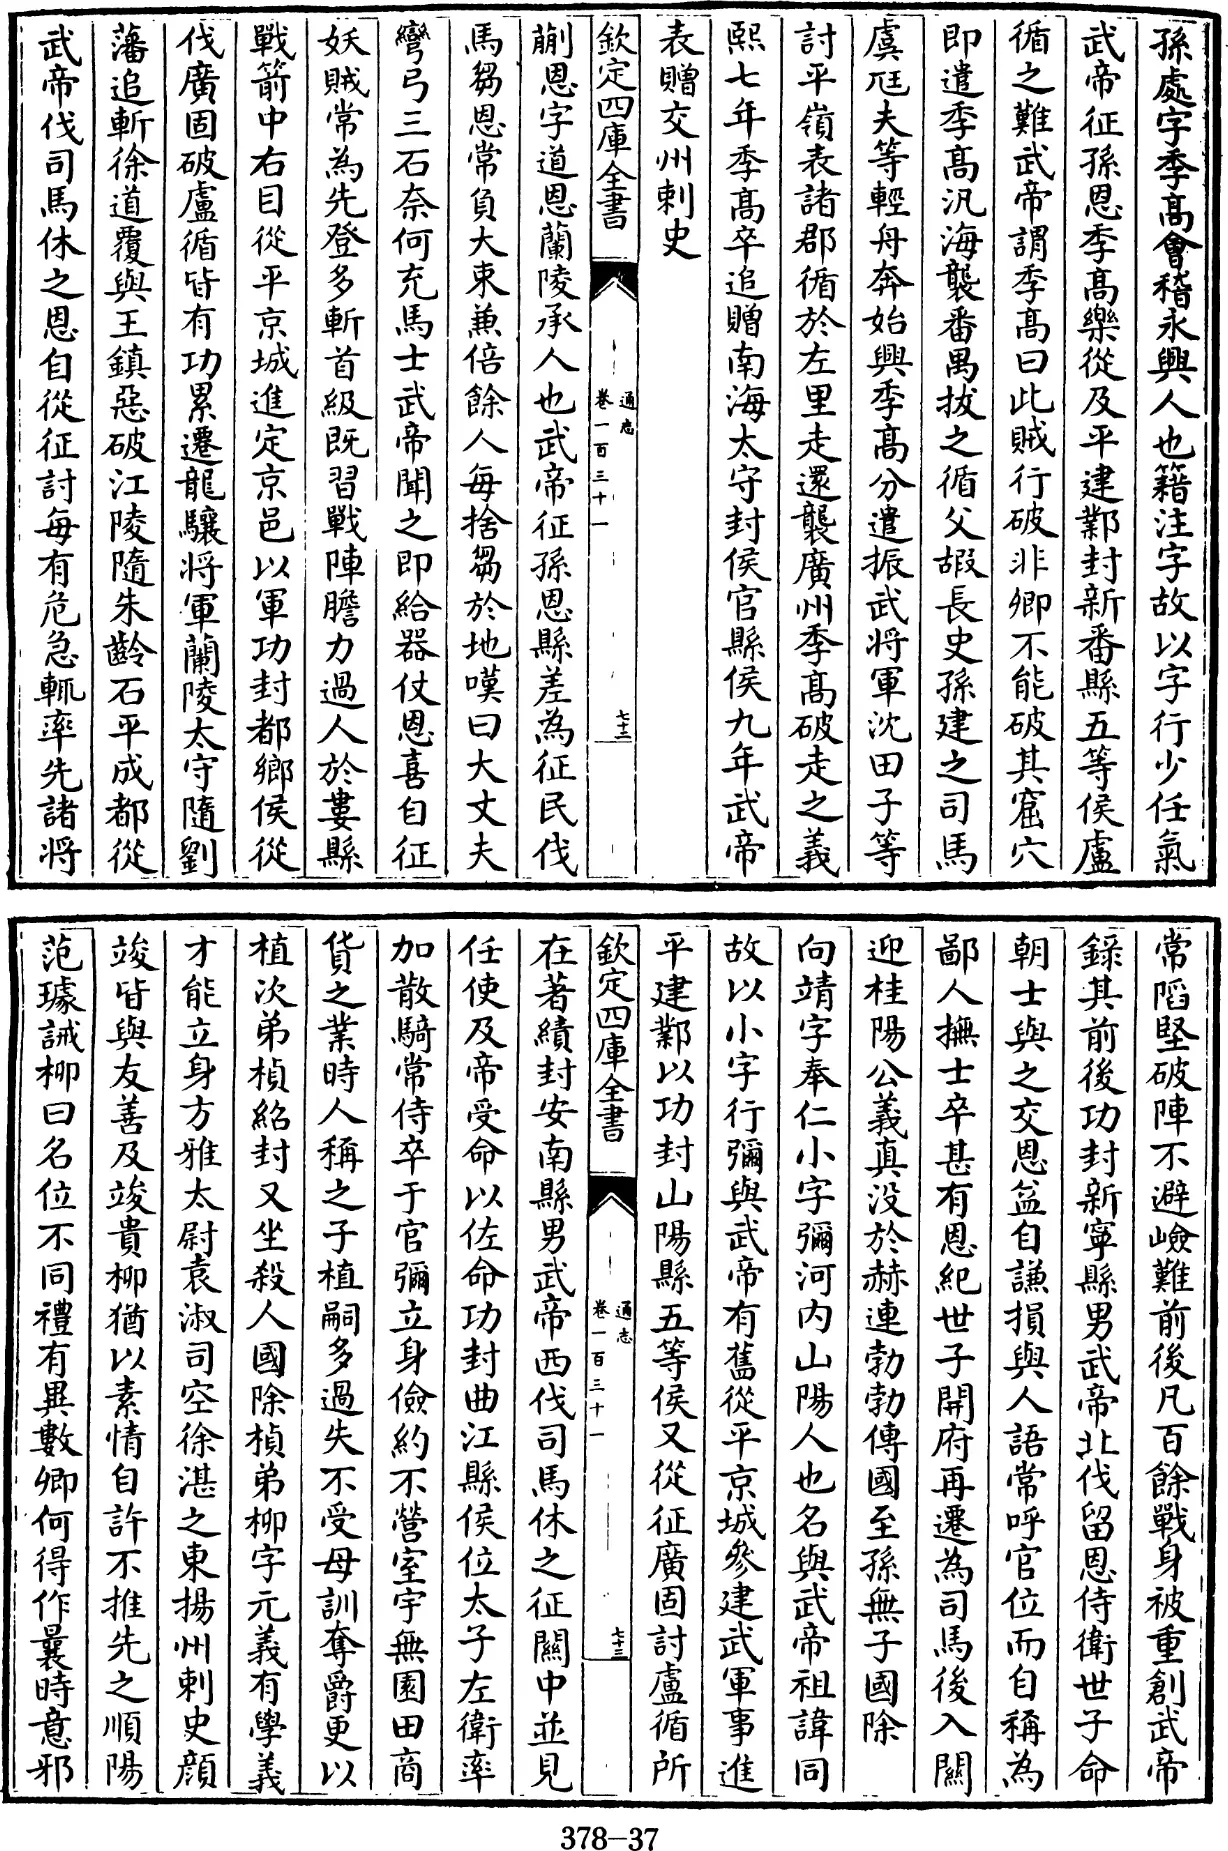 孫處字季髙會稽永興人也籍注字故以字行少任氣
武帝征孫恩季髙樂從及平建鄴封新番縣五等侯盧
循之難武帝謂季髙曰此賊行破非卿不能破其窟穴
即遣季髙汎海襲番禺拔之循父嘏長史孫建之司馬
虞尫夫等輕舟奔始興季髙分遣振武將軍沈田子等
討平嶺表諸郡循於左里走還襲廣州季髙破走之義
熙七年季髙卒追贈南海太守封侯官縣侯九年武帝
表贈交州刺史
欽定四庫全書
通志
卷一百三十一
七十三
蒯恩字道恩蘭陵承人也武帝征孫恩縣差為征民伐
馬芻恩常負大束兼倍餘人每捨芻於地嘆曰大丈夫
彎弓三石奈何充馬士武帝聞之即給器仗恩喜自征
妖賊常為先登多斬首級既習戰陣膽力過人於婁縣
戰箭中右目從平京城進定京邑以軍功封都鄉侯從
伐廣固破盧循皆有功累遷龍驤將軍蘭陵太守隨劉
藩追斬徐道覆與王鎮惡破江陵隨朱齡石平成都從
武帝伐司馬休之恩自從征討每有危急輒率先諸將
常陷堅破陣不避嶮難前後凡百餘戰身被重創武帝
錄其前後功封新寧縣男武帝北伐留恩侍衛世子命
朝士與之交恩益自謙損與人語常呼官位而自稱為
鄙人撫士卒甚有恩紀世子開府再遷為司馬後入關
迎桂陽公義真沒於赫連勃勃傳國至孫無子國除
向靖字奉仁小字彌河内山陽人也名與武帝祖諱同
故以小字行彌與武帝有舊從平京城參建武軍事進
平建鄴以功封山陽縣五等侯又從征廣固討盧循所
欽定四庫全書
通志
卷一百三十一
七十三
在著績封安南縣男武帝西伐司馬休之征關中並見
任使及帝受命以佐命功封曲江縣侯位太子左衛率
加散騎常侍卒于官彌立身儉約不營室宇無園田商
貨之業時人稱之子植嗣多過失不受母訓奪爵更以
植次弟楨紹封又坐殺人國除楨弟柳字元義有學義
才能立身方雅太尉袁淑司空徐湛之東揚州刺史顔
竣皆與友善及竣貴柳猶以素情自許不推先之順陽
范璩誡柳曰名位不同禮有異數卿何得作曩時意邪
378-37